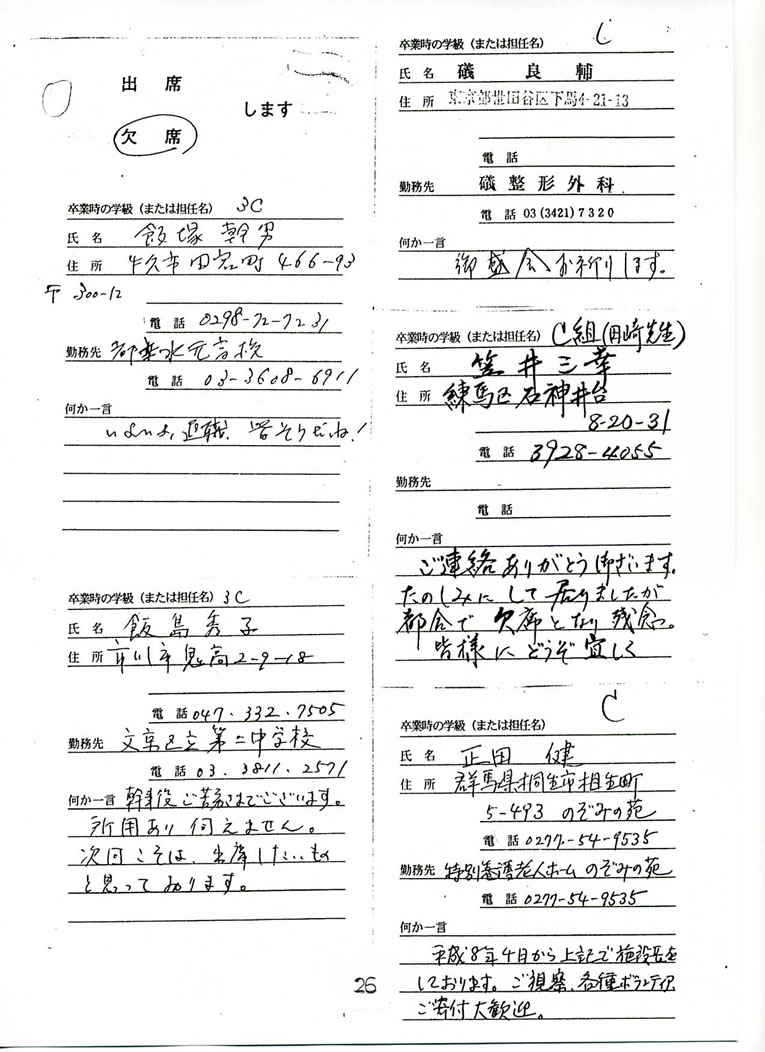 出席
します
欠席
卒業時の学級（または担任名） 3C
氏名 飯塚 幹男
住所 牛久市田宮町 466-93
〒 300-12
電話 0298-72-7231
勤務先 都立水元高校
電話 03-3608-6911
何か一言
いよいよ退職、皆そうだね！
卒業時の学級（または担任名） 3C
氏名 飯島 秀子
住所 市川市鬼高2-9-18
電話 047.332.7505
勤務先 文京区立第二中学校
電話 03.3811.2571
何か一言 幹事役ご苦労さまでございます。
所用あり伺えません。
次回こそは、出席したいもの
と思っております。
卒業時の学級（または担任名） C
氏名 礒 良輔
住所 東京都世田谷区下馬4-21-13
電話
勤務先 礒整形外科
電話 03(3421)7320
何か一言
御盛会お祈りします。
卒業時の学級（または担任名） C組(田崎先生)
氏名 笠井三幸
住所 練馬区石神井台
8-20-31
電話 3928-4055
勤務先
電話
何か一言
ご連絡ありがとう御ざいます。
たのしみにして居りましたが
都合で欠席となり残念。
皆様にどうぞ宜しく
卒業時の学級（または担任名） C
氏名 正田 健
住所 群馬県桐生市相生町
5-493 のぞみの苑
電話 0277-54-9535
勤務先 特別養護老人ホームのぞみの苑
電話 0277-54-9535
何か一言
平成8年4月から上記で施設長を
しております。ご視察、各種ボランティア、
ご寄付大歓迎。
26